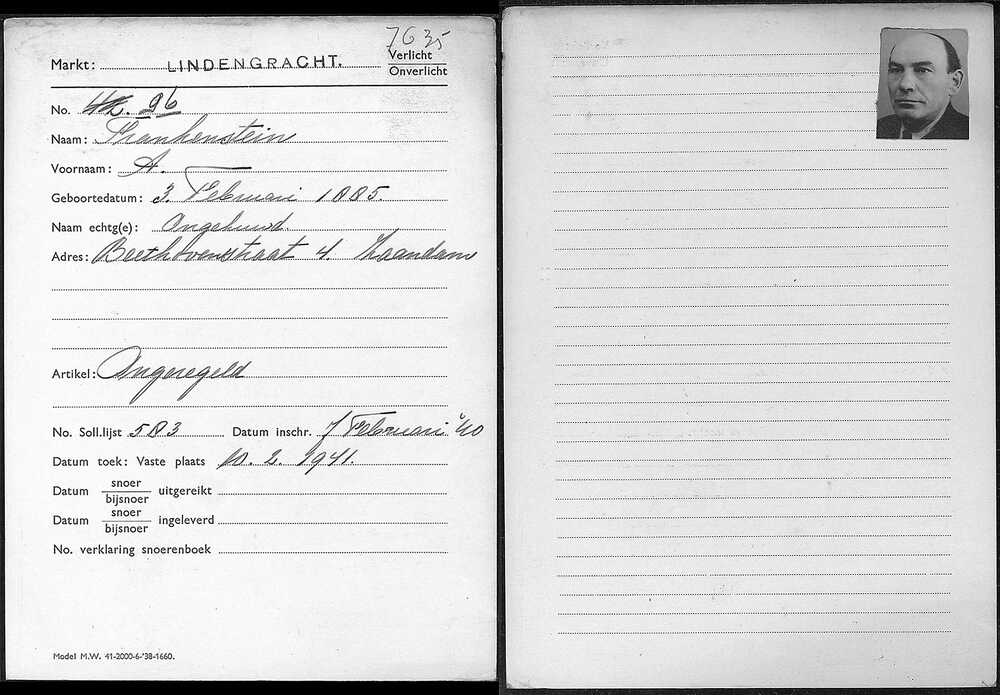 7635
Markt: LINDENGRACHT. Verlicht
Onverlicht
No. 96
Naam: Frankenstein
Voornaam: A.
Geboortedatum: 3 Februari 1885.
Naam echtg(e): Ongehuwd.
Adres: Beethovenstraat 4. Zaandam
Artikel: Ongeregeld
No. Soll.lijst 583 Datum inschr. 7 Februari '40
Datum toek: Vaste plaats 10. 2. 1941.
Datum snoer uitgereikt
bijsnoer
Datum snoer ingeleverd
bijsnoer
No. verklaring snoerenboek
Model M.W. 41-2000-6-'38-1660.